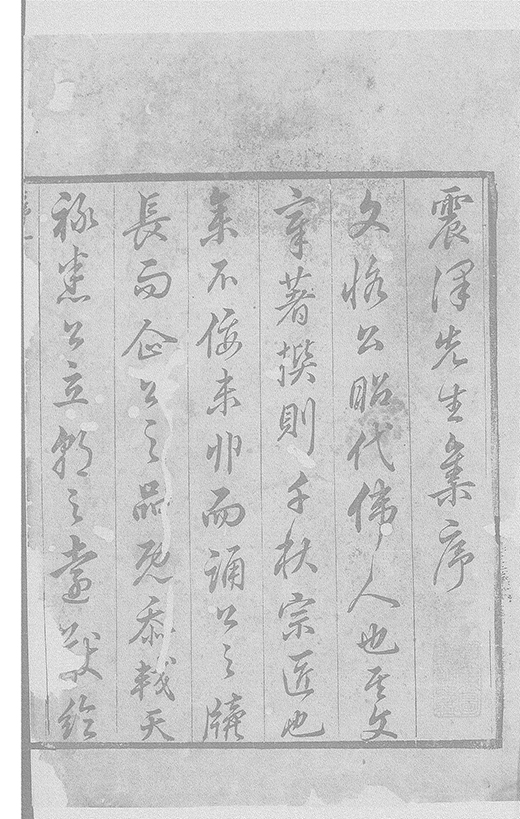 震澤先生集序
文恪公昭代偉人也其文
章著撰則千秋宗匠也
余不佞未丱而誦公之牘
長而企公之品既忝天
祿悉公立朝之給